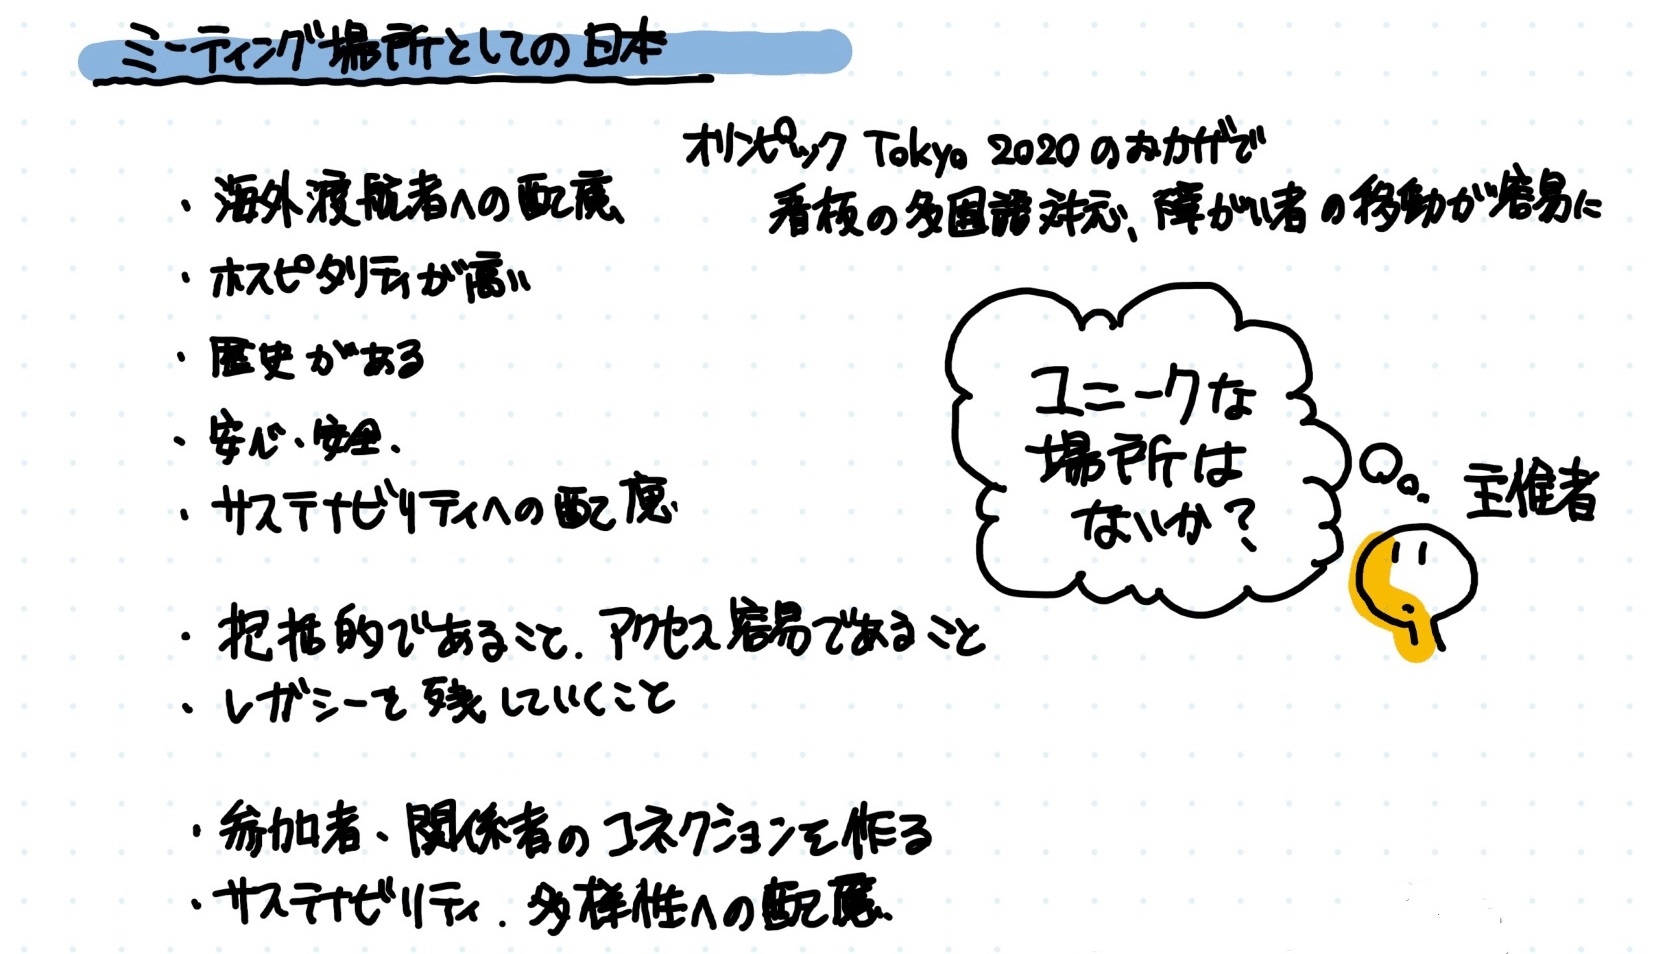 ミーティング場所としての日本
オリンピック Tokyo 2020 のおかげで
看板の多国語対応、障がい者の移動が容易に
・海外渡航者への配慮
・ホスピタリティが高い
・歴史がある
・安心・安全.
・サステナビリティへの配慮
ユニークな
場所は
ないか？
主催者
・包括的であること. アクセス容易であること
・レガシーを残していくこと
・参加者、関係者のコネクションを作る
・サステナビリティ. 多様性への配慮